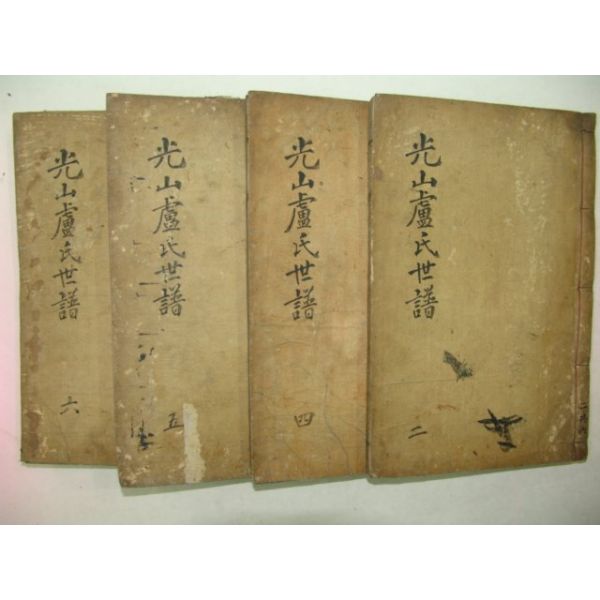 光山盧氏世譜
二
光山盧氏世譜
四
光山盧氏世譜
五
光山盧氏世譜
六